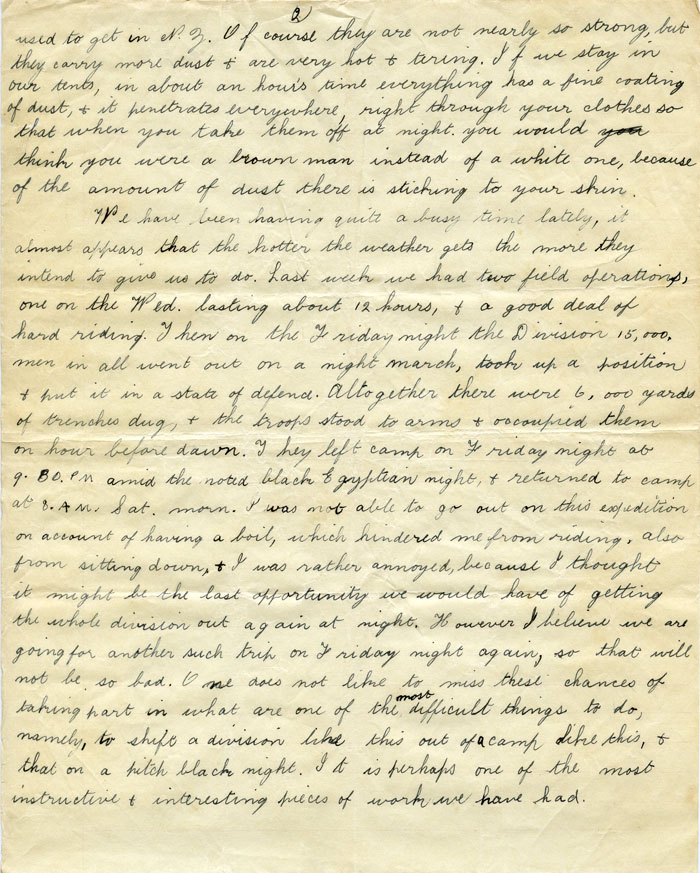 2
used to get in N. Z. Of course they are not nearly so strong, but
they carry more dust & are very hot & tiring. If we stay in
our tents, in about an hour's time everything has a fine coating
of dust, & it penetrates everywhere, right through your clothes so
that when you take them off at night. you would you
think you were a brown man instead of a white one, because
of the amount of dust there is sticking to your skin.
We have been having quite a busy time lately, it
almost appears that the hotter the weather gets the more they
intend to give us to do. Last week we had two field operations,
one on the Wed. lasting about 12 hours, & a good deal of
hard riding. Then on the Friday night the Division 15,000.
men in all went out on a night march, took up a position
& put it in a state of defend. Altogether there were 6,000 yards
of trenches dug, & the troops stood to arms & occoupied them
on hour before dawn. They left camp on Friday night at
9.30.PM amid the noted black Egyptian night, & returned to camp
at 8.AM. Sat. morn. I was not able to go out on this expedition
on account of having a boil, which hindered me from riding, also
from sitting down, & I was rather annoyed, because I thought
it might be the last opportunity we would have of getting
the whole division out again at night. However I believe we are
going for another such trip on Friday night again, so that will
not be so bad. One does not like to miss these chances of
taking part in what are one of the most difficult things to do,
namely, to shift a division like this out of a camp like this, &
that on a pitch black night. It is perhaps one of the most
instructive & interesting pieces of work we have had.